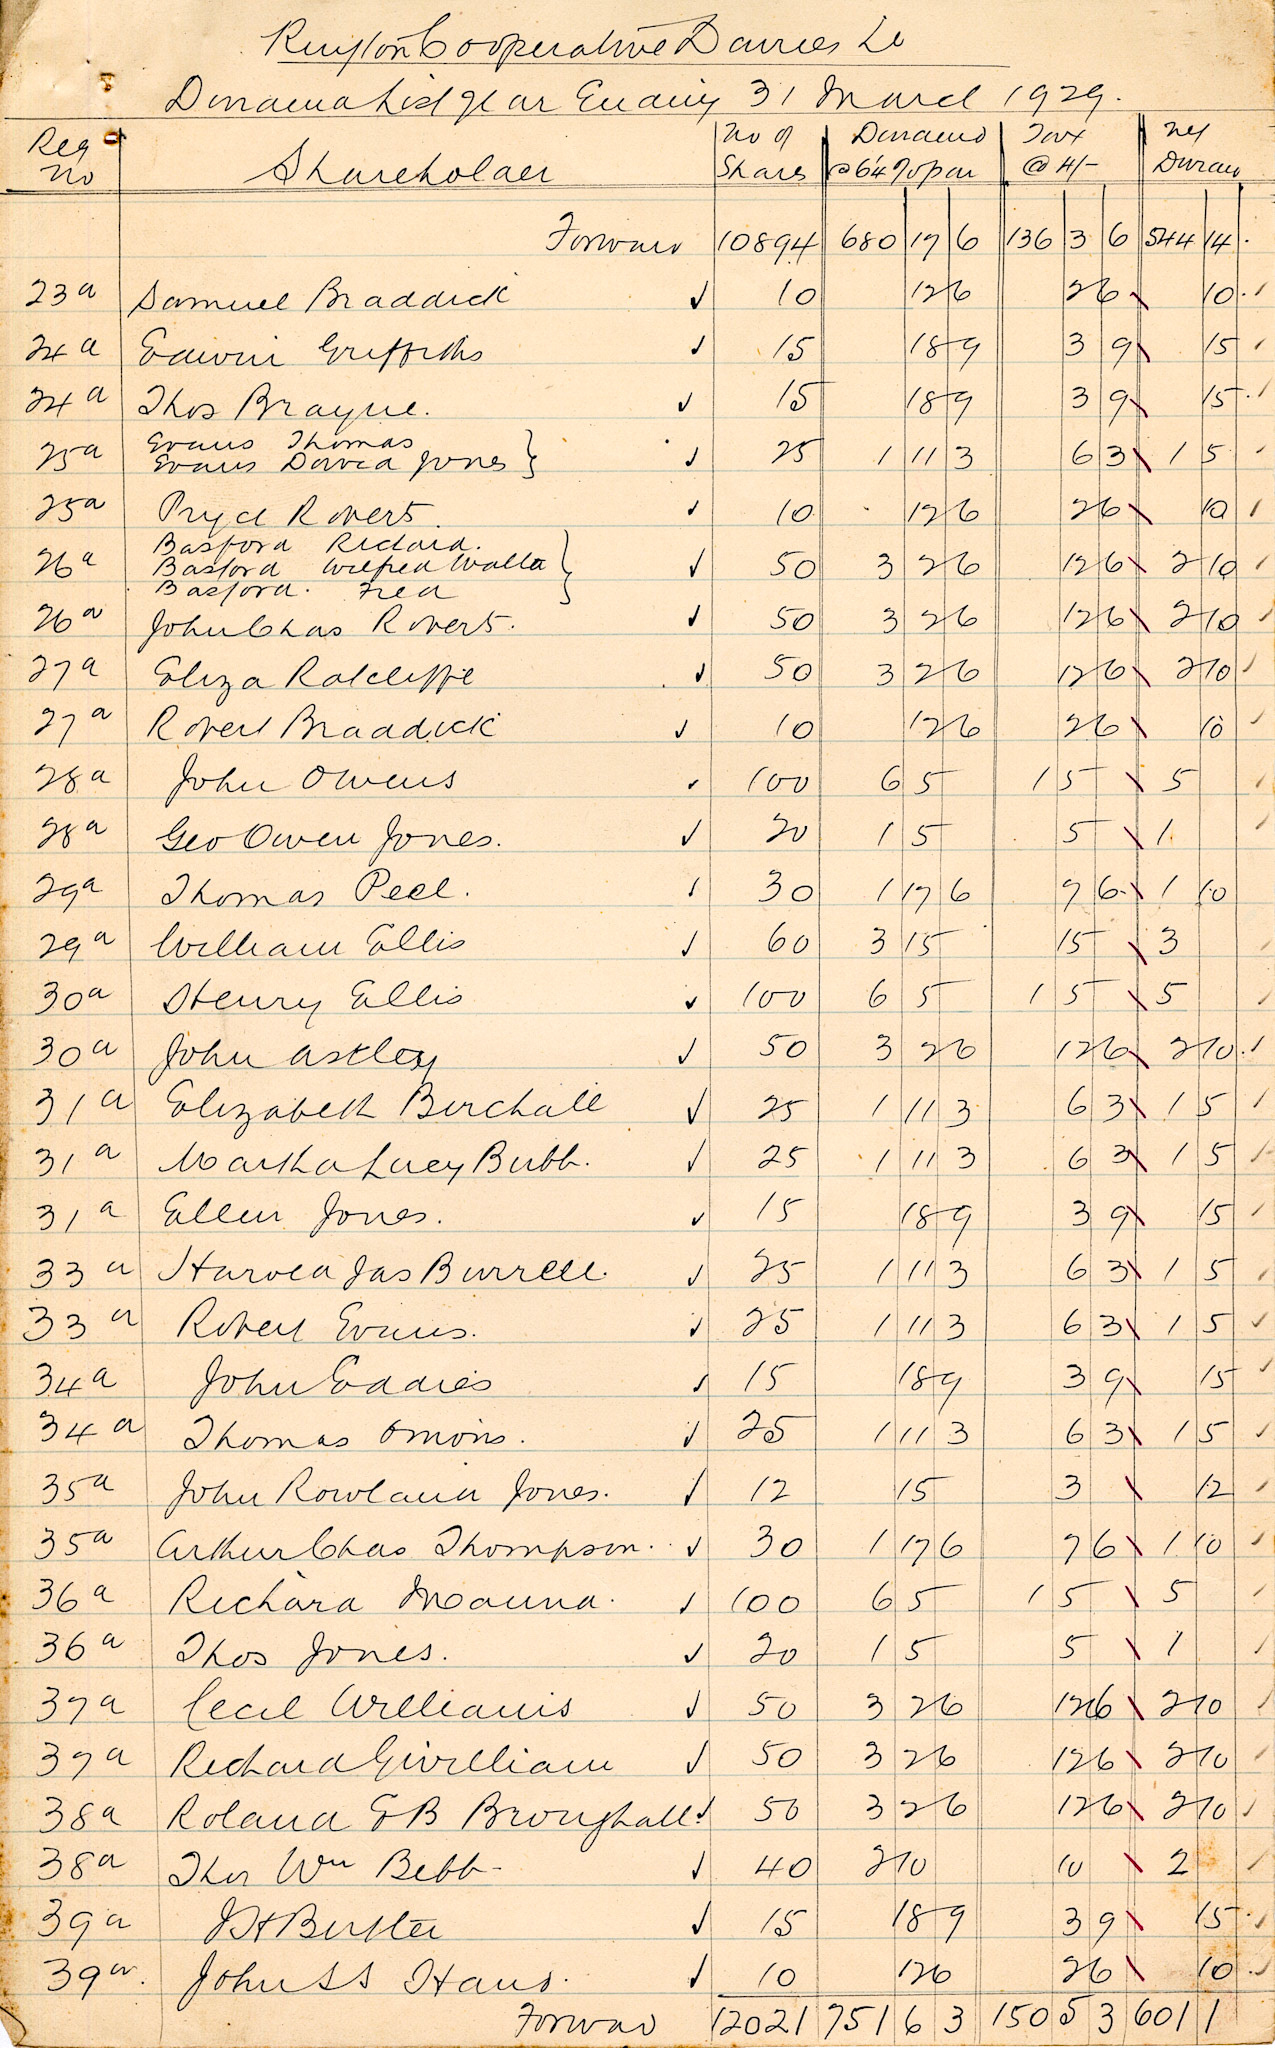 Ruyton Cooperative Dairies Ld
Dividend List year Ending 31 March 1929.
Reg No Shareholder No of Shares Dividend @ 6¼ % per an Tax @ 4/- Net Divid
Forward 10894 680 17 6 136 3 6 544 14 .
23a Samuel Braddick ✓ 10 12 6 2 6 10 . ✓
24a Edwin Griffiths ✓ 15 18 9 3 9 15 ✓
24a Thos Brayne. ✓ 15 18 9 3 9 15 . ✓
25a Evans Thomas
Evans David Jones } ✓ 25 1 11 3 6 3 1 5 ✓
25a Pryce Robert. ✓ 10 12 6 2 6 10 ✓
Basford Richard.
26a Basford Wilfred Walter } ✓ 50 3 2 6 12 6 2 10 ✓
Basford. Fred
26a John Chas Robert. ✓ 50 3 2 6 12 6 2 10 ✓
27a Eliza Ratcliffe ✓ 50 3 2 6 12 6 2 10 ✓
27a Robert Braddick ✓ 10 12 6 2 6 10 ✓
28a John Owens ✓ 100 6 5 1 5 5 ✓
28a Geo Owen Jones. ✓ 20 1 5 5 1 ✓
29a Thomas Peel. ✓ 30 1 17 6 7 6 1 10
29a William Ellis ✓ 60 3 15 15 3 ✓
30a Henry Ellis ✓ 100 6 5 1 5 5 ✓
30a John Astley ✓ 50 3 2 6 12 6 2 10 . ✓
31a Elizabeth Birchall ✓ 25 1 11 3 6 3 1 5 ✓
31a Martha Lucy Bubb. ✓ 25 1 11 3 6 3 1 5 ✓
31a Ellen Jones. ✓ 15 18 9 3 9 15 ✓
33a Harold Jas Burrell. ✓ 25 1 11 3 6 3 1 5 ✓
33a Robert Evans. ✓ 25 1 11 3 6 3 1 5 ✓
34a John Eddies ✓ 15 18 9 3 9 15 ✓
34a Thomas Onions. ✓ 25 1 11 3 6 3 1 5 ✓
35a John Rowland Jones. ✓ 12 15 3 12 ✓
35a Arthur Chas Thompson. ✓ 30 1 17 6 7 6 1 10 ✓
36a Richard Maund. ✓ 100 6 5 1 5 5 ✓
36a Thos Jones. ✓ 20 1 5 5 1 ✓
37a Cecil Williams ✓ 50 3 2 6 12 6 2 10 ✓
37a Richard Gwilliam ✓ 50 3 2 6 12 6 2 10 ✓
38a Roland E B Broughall ✓ 50 3 2 6 12 6 2 10 ✓
38a Thos Wm Bebb ✓ 40 2 10 10 2 ✓
39a J H ✓ 15 18 9 3 9 15 . ✓
39a. John S S ✓ 10 12 6 2 6 10 . ✓
Forward 12021 751 6 3 150 5 3 601 1